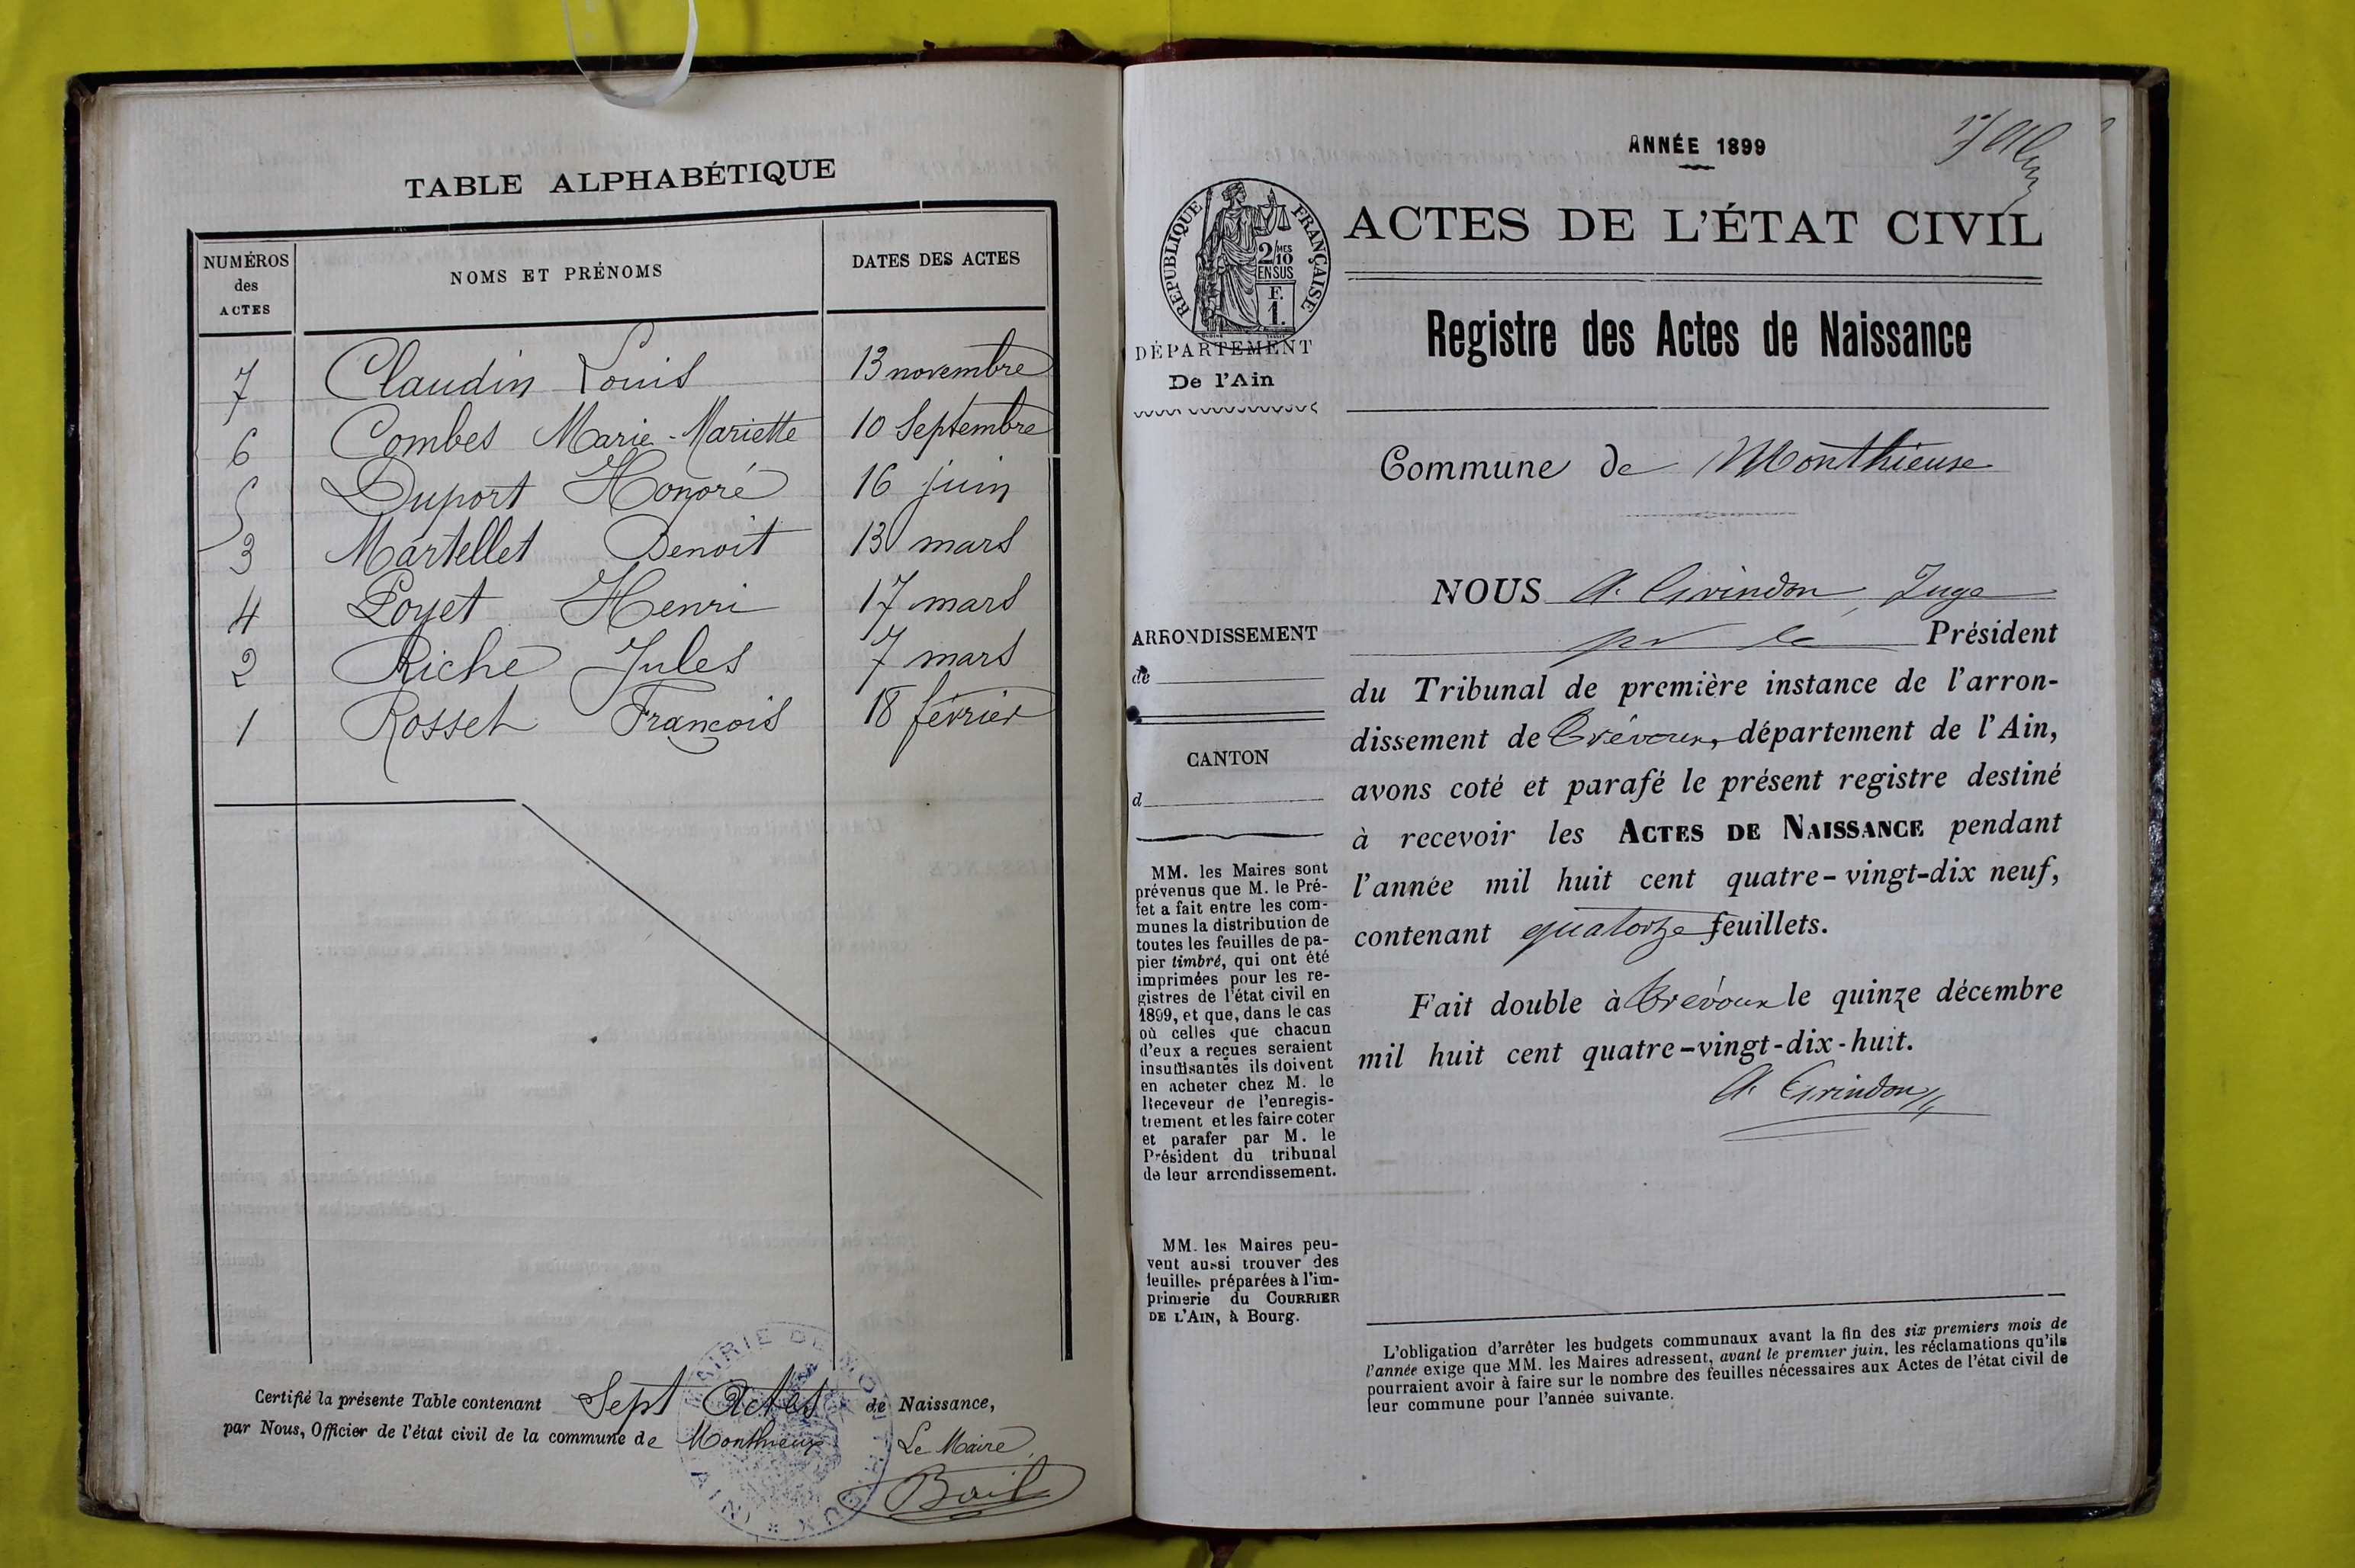 TABLE ALPHABÉTIQUE
NUMÉROS
des
ACTES
NOMS ET PRÉNOMS
DATES DES ACTES
7 Claudin Louis 13 novembre
6 Combes Marie-Mariette 10 Septembre
5 Duport Honoré 16 juin
3 Martellet Benoit 13 mars
4 Poyet Henri 17 mars
2 Riche Jules 7 mars
1 Rosset François 18 février
Certifié la présente Table contenant Sept Actes de Naissance,
par Nous, Officier de l'état civil de la commune de Monthieux
Le Maire
MAIRIE DE MONTHIEUX
(AIN)
ANNÉE 1899
RÉPUBLIQUE FRANÇAISE
2/10
MES
EN SUS
F.
1.
DÉPARTEMENT
De l'Ain
ARRONDISSEMENT
de
CANTON
d
MM. les Maires sont
prévenus que M. le Pré-
fet a fait entre les com-
munes la distribution de
toutes les feuilles de pa-
pier timbré, qui ont été
imprimées pour les re-
gistres de l'état civil en
1899, et que, dans le cas
où celles que chacun
d'eux a reçues seraient
insuffisantes ils doivent
en acheter chez M. le
Receveur de l'enregis-
trement et les faire coter
et parafer par M. le
Président du tribunal
de leur arrondissement.
MM. les Maires peu-
vent aussi trouver des
feuilles préparées à l'im-
primerie du COURRIER
DE L'AIN, à Bourg.
ACTES DE L'ÉTAT CIVIL
Registre des Actes de Naissance
Commune de Monthieux
NOUS A. Grindon, Juge
pr le Président
du Tribunal de première instance de l'arron-
dissement de Trévoux, département de l'Ain,
avons coté et parafé le présent registre destiné
à recevoir les ACTES DE NAISSANCE pendant
l'année mil huit cent quatre-vingt-dix neuf,
contenant quatorze feuillets.
Fait double à Trévoux le quinze décembre
mil huit cent quatre-vingt-dix-huit.
A. Grindon
L'obligation d'arrêter les budgets communaux avant la fin des six premiers mois de
l'année exige que MM. les Maires adressent, avant le premier juin, les réclamations qu'ils
pourraient avoir à faire sur le nombre des feuilles nécessaires aux Actes de l'état civil de
leur commune pour l'année suivante.